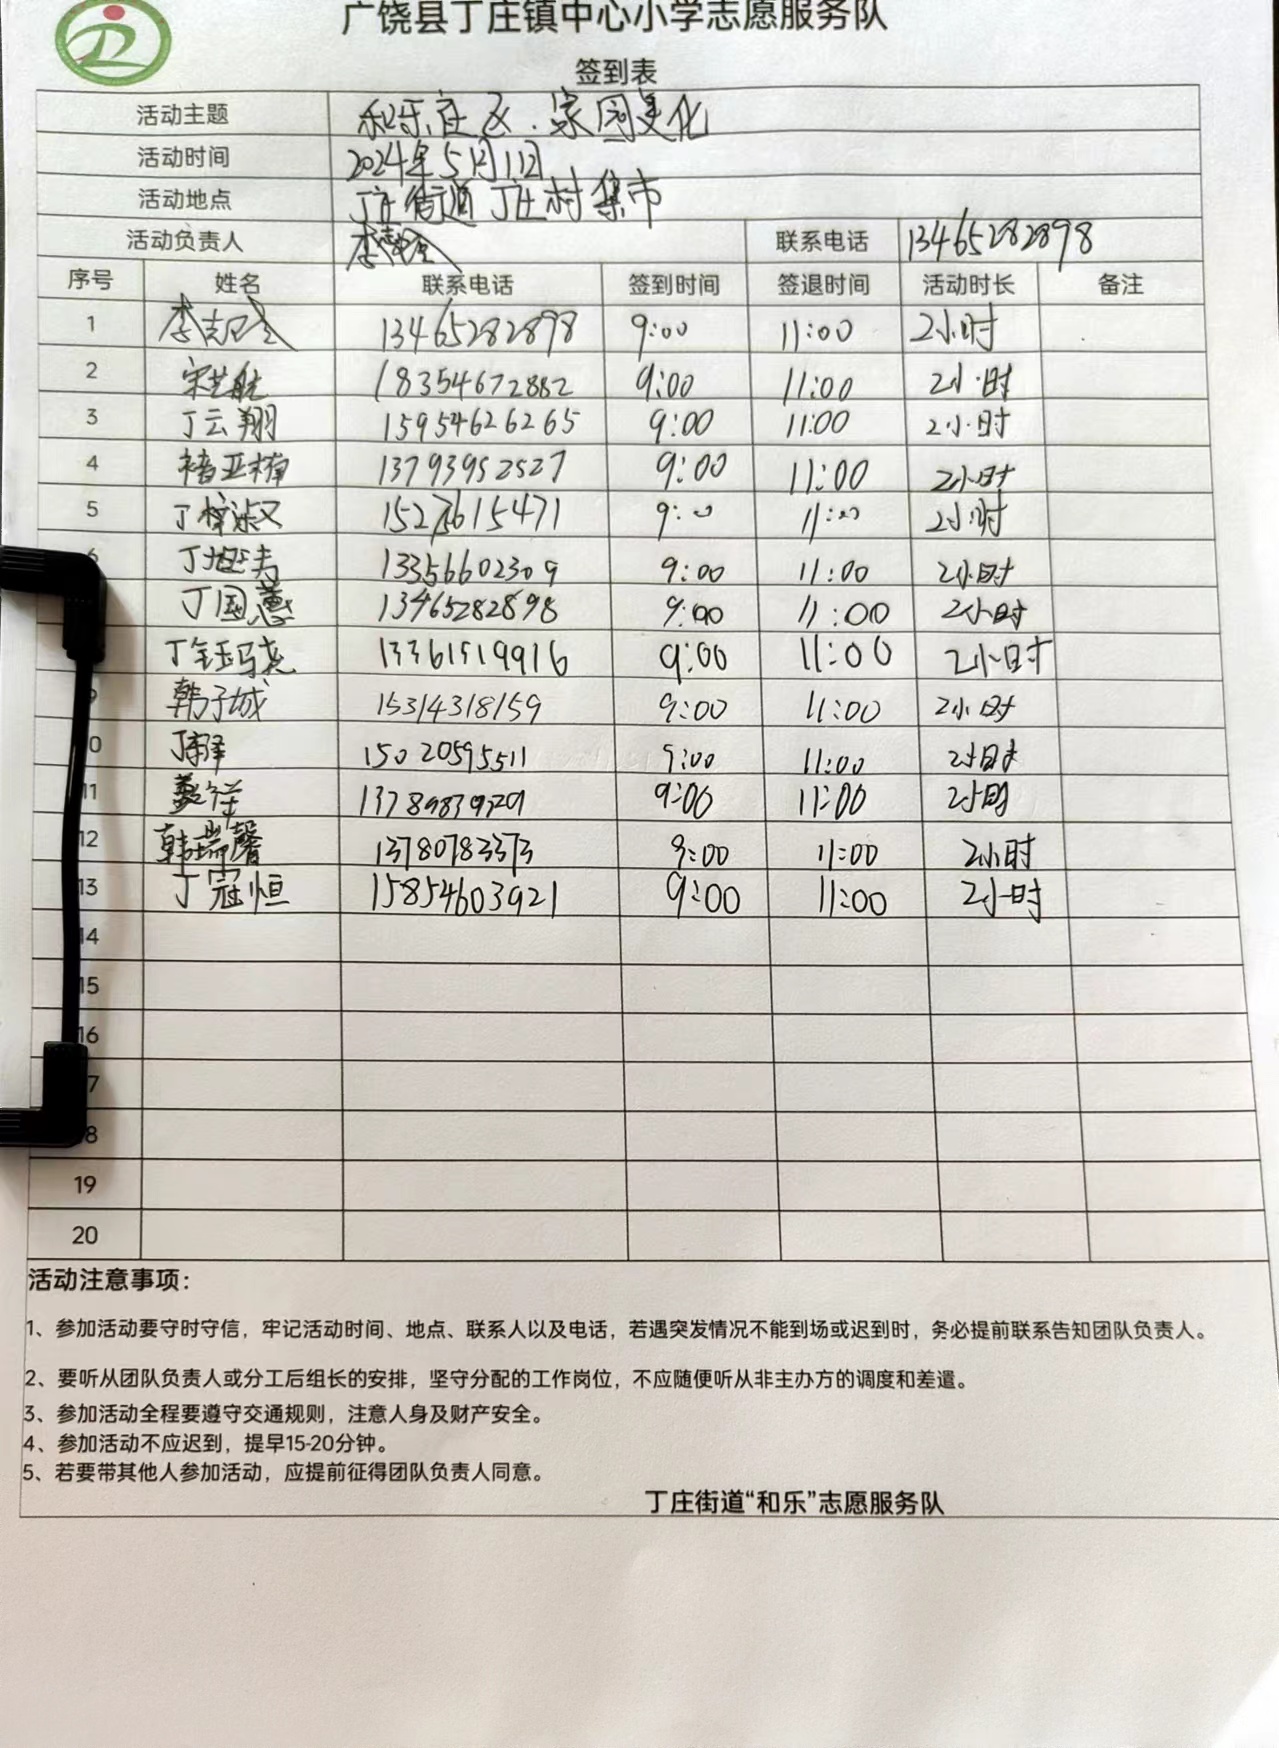 广饶县丁庄镇中心小学志愿服务队
签到表
活动主题 和乐庄区.家园美化
活动时间 2024年5月11日
活动地点 丁庄街道丁庄村集市
活动负责人 联系电话 13465282898
序号 姓名 联系电话 签到时间 签退时间 活动时长 备注
1 13465282898 9:00 11:00 2小时
2 宋艺航 18354672882 9:00 11:00 2小时
3 丁云翔 15954626265 9:00 11:00 2小时
4 褚亚楠 13793952527 9:00 11:00 2小时
5 9:00 11:00 2小时
6 13356602309 9:00 11:00 2小时
丁国蕙 13465282898 9:00 11:00 2小时
13361519916 9:00 11:00 2小时
9 韩子城 15314318159 9:00 11:00 2小时
10 15020595511 9:00 11:00 2小时
11 9:00 11:00 2小时
12 韩瑞馨 13780783373 9:00 11:00 2小时
13 丁冠恒 15854603921 9:00 11:00 2小时
14
15
16
7
8
19
20
活动注意事项：
1、参加活动要守时守信，牢记活动时间、地点、联系人以及电话，若遇突发情况不能到场或迟到时，务必提前联系告知团队负责人。
2、要听从团队负责人或分工后组长的安排，坚守分配的工作岗位，不应随便听从非主办方的调度和差遣。
3、参加活动全程要遵守交通规则，注意人身及财产安全。
4、参加活动不应迟到，提早15-20分钟。
5、若要带其他人参加活动，应提前征得团队负责人同意。
丁庄街道“和乐”志愿服务队